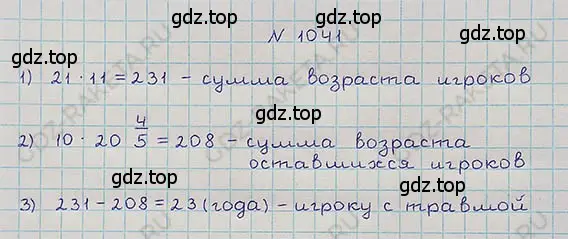 gdz.top gdz.top
N 1041
gdz.top
1) 21 · 11 = 231 - сумма возраста игроков
gdz.top gdz.top
2) 10 · 20 4/5 = 208 - сумма возраста
оставшихся игроков
gdz.top gdz.top
3) 231 - 208 = 23 (года) - игроку с травмой
gdz.top